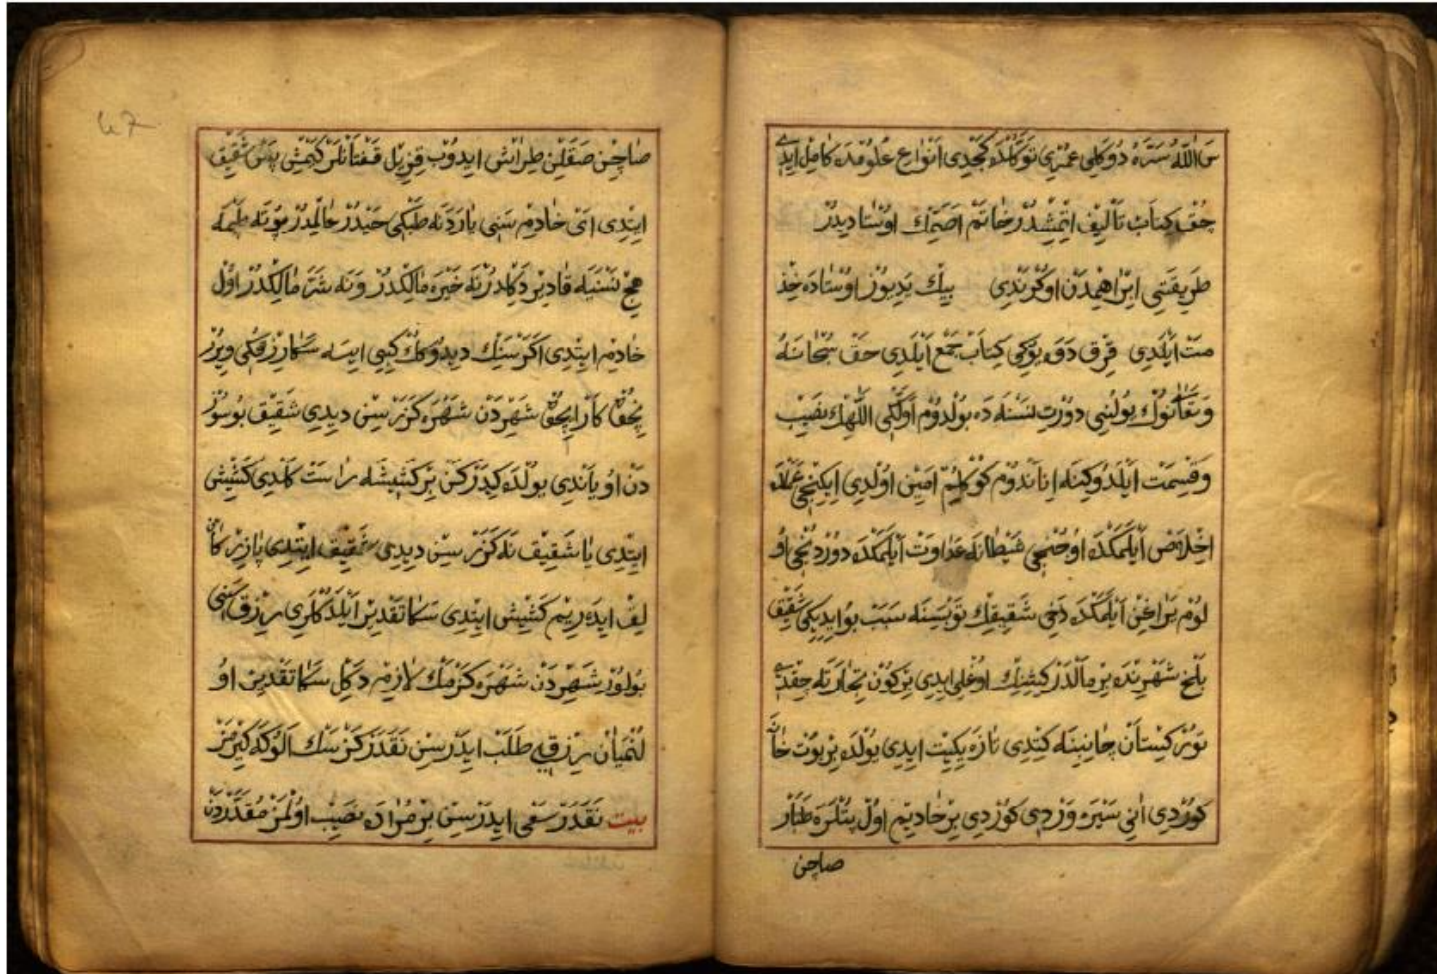 سَ اللّٰهُ سَرَه دُوكَلِى عُمْرِى تَوَكّلْدَه كَجْدِى اَنْوَاعِ عُلُومْدَه كَامِلْ اِيدِى
جُقْ كِتَابْ تَأْلِيفْ اِتْمِشْدُرْ حَاتَمْ اَصَمِّكْ اوُسْتَادِيدُرْ
طَرِيقَتِى اِبْرٰاهِمْدَنْ اوُكْرَنْدِى بِيكْ يَدِيوُزْ اوُسْتَادَه خِذ
مَتْ اَيْلَدِى قِرْقْ دَوَه يوُكِى كِتَابْ جَمْعْ اَيْلَدِى حَقْ سُبْحَانَهُ
وَتَعَالٰىنوُكْ يوُلِنِى دوُرْتْ نَسْنَه دَه بوُلْدوُمْ اَوَّلْكِى اَللّٰهِكْ نَصِيبْ
وَقِسْمَتْ اَيْلَدوُكِنَه اِنَانْدوُمْ كوُكْلُمْ اَمِينْ اوُلْدِى اِيكِنْجِى عَمَلْدَه
اِخْلَاصْ اَيْلَمَكْدَه اوُجُنْجِى شَيْطَانَه عَدَاوَتْ اَيْلَمَكْدَه دوُرْدُنْجِى اوُ
لوُمْ يَرَاغِنْ اَيْلَمَكْدَه دَخِى شَقِيقِكْ تَوْبَسِنَه سَبَبْ بوُ اِيدِيكِى شَقِيقْ
بَلْخْ شَهْرِنْدَه بِرْ مَالْدَرْ كِشِنِكْ اوُغْلِى اِيدِى بِرْ كوُنْ تِجَارَتَه جِقْدِى
توُرْكِسْتَانْ جَانِبِنَه كِتْدِى تَازَه يِكِيتْ اِيدِى يوُلْدَه بِرْ بوُتْ خَانَه
كوُرْدِى اَنِى سَيْرَه وَرْدِى كوُرْدِى بِرْ خَادِيمْ اوُلْ بُتْلَرَه طَپَارْ
صاچن
47
صَاچِنْ صَقَلِنْ طِرَاشْ اِيدوُبْ قِزِيلْ قَفْتَانْلَرْ كَيْمِشْ پَسْ شَقِيقْ
اِيتْدِى اَىْ خَادِمْ سَنِى يَارَدَنَه طَپْكِى حَيْدُرْ عَالِمْدُرْ بوُتَه طَپْمَه
هِچْ نَسْنَيَه قَادِيرْ دَكِلْدُرْ نَه خَيْرَه مَالِكْدُرْ وَنَه شَرَّه مَالِكْدُرْ اوُلْ
خَادِمْ اِيتْدِى اَكَرْ سَنِكْ دِيدوُكُكْ كِيبِى اِيسَه سَكَا رِزْقِكِى وِيرُرْ
نِچُونْ كَارْ اِيچُونْ شَهِرْدَنْ شَهْرَه كَزَرْسِنْ دِيدِى شَقِيقْ بوُ سوُزْ
دَنْ اوُيَانْدِى يوُلْدَه كِيدَرْكَنْ بِرْ كَشِيشَه رَاسْتْ كَلْدِى كَشِيشْ
اِيتْدِى يَا شَقِيقْ نَه كَزَرْسِنْ دِيدِى شَقِيقْ اِيتْدِى پَازِرْكَانْ
لِقْ اِيدَه رِيمْ كَشِيشْ اِيتْدِى سَكَا تَقْدِيرْ اَيْلَدُكْلَرِى رِزْقْ سَنِى
بوُلوُرْ شَهِرْدَنْ شَهْرَه كَزْمَكْ لَازِمْ دَكِلْ سَكَا تَقْدِيرْ اوُ
لُنْمَيَانْ رِزْقِى طَلَبْ اِيدَرْسِنْ نَقَدَرْ كَزْسَكْ اَلوُكَه كِيرْمَزْ
بيت نَقَدَرْ سَعْى اِيدَرْسِنْ بِرْ مُرَادَه نَصِيبْ اوُلْمَزْ مُقَدَّرْدَنْ